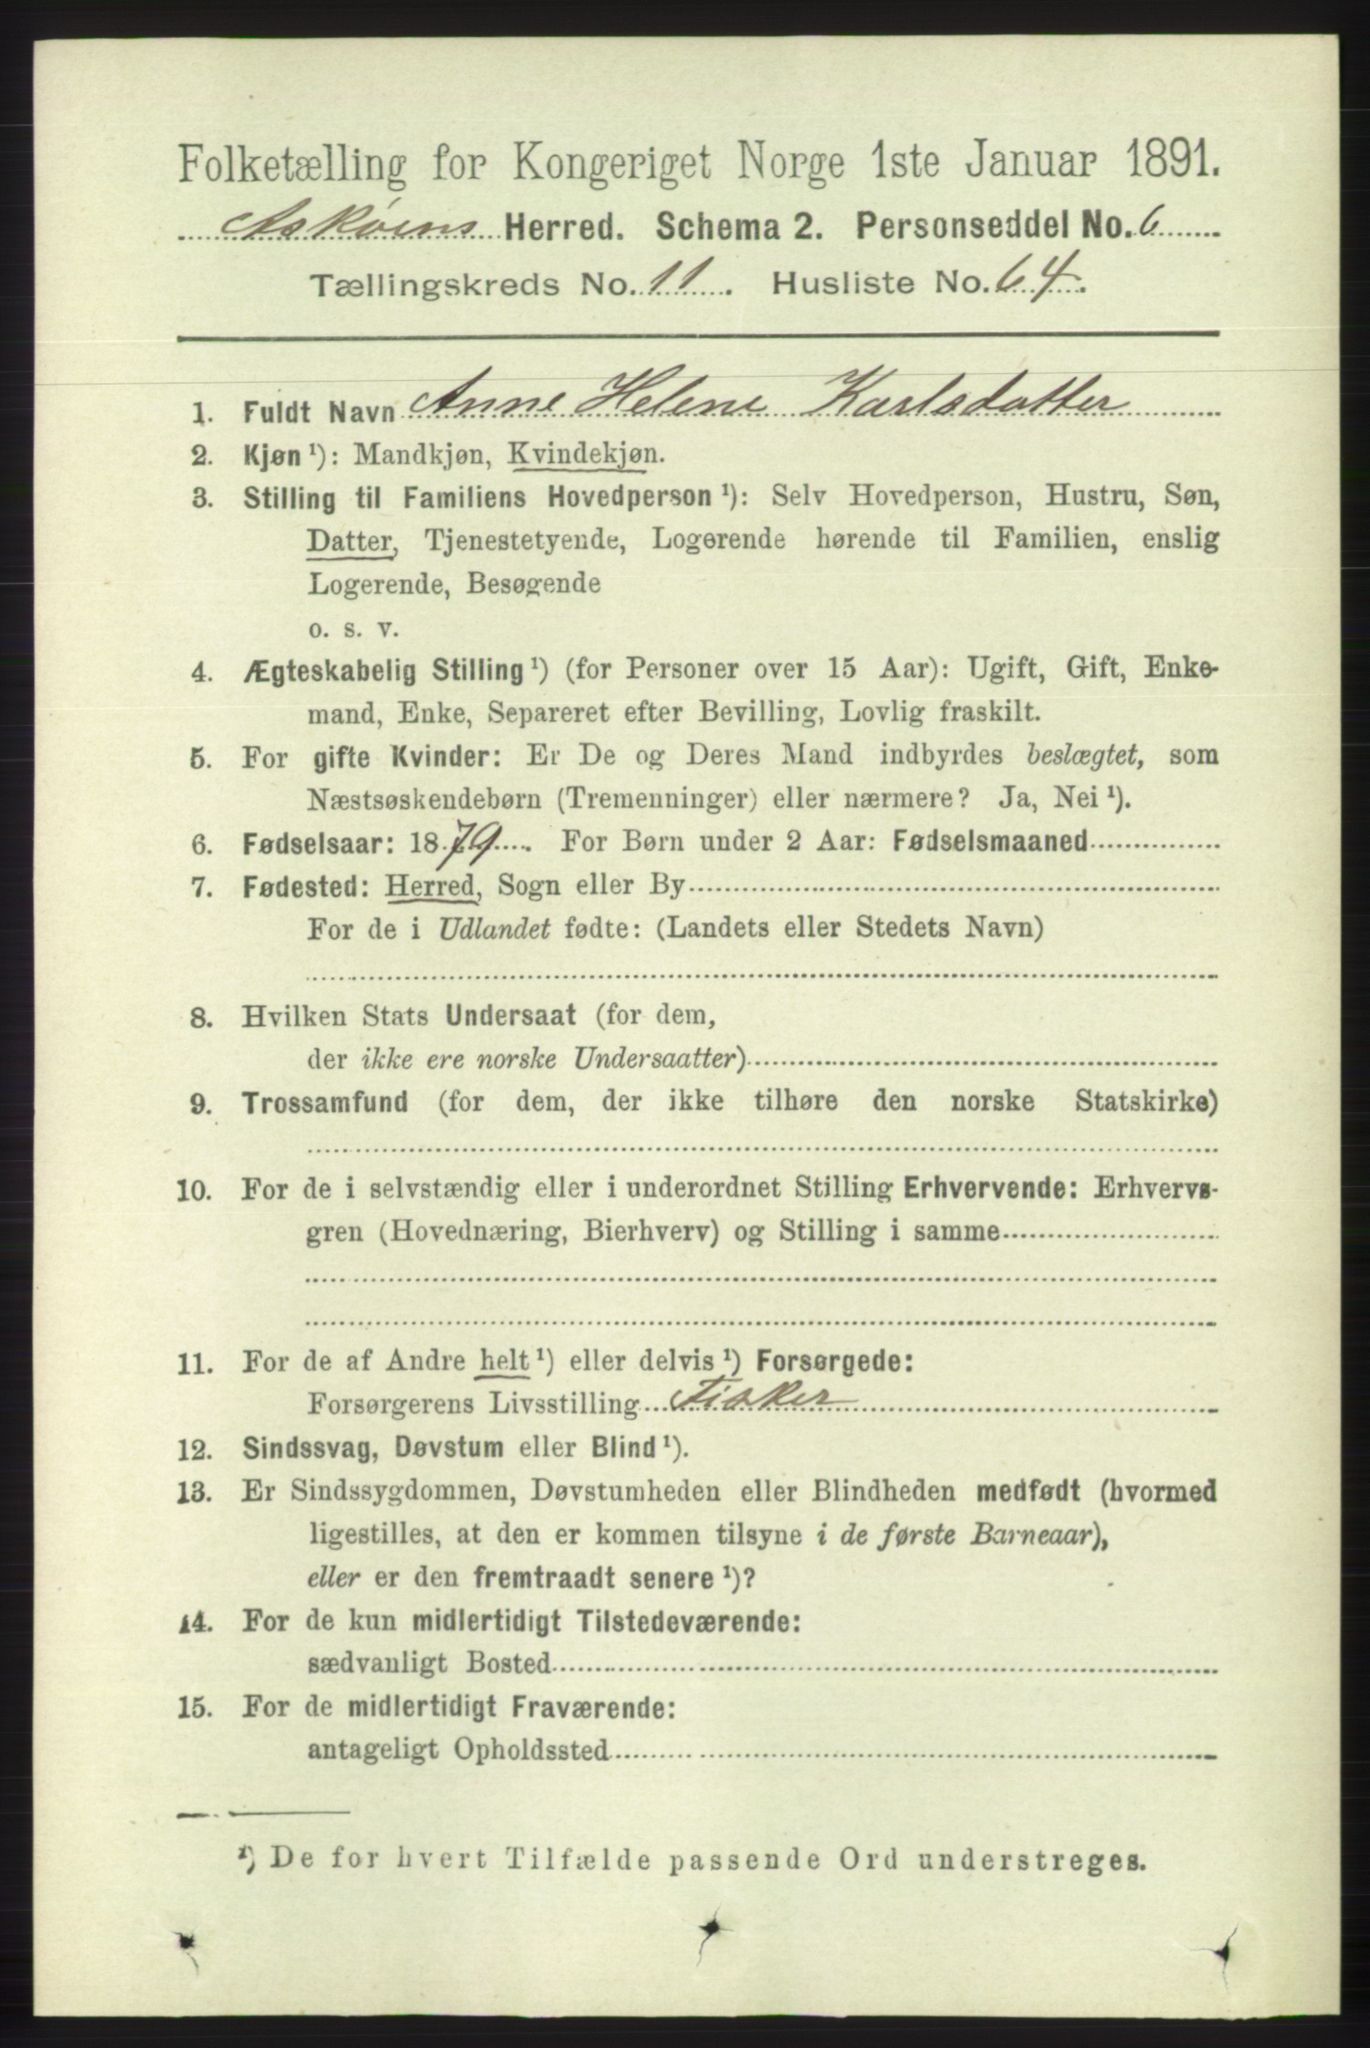 Folketælling for Kongeriget Norge 1ste Januar 1891.
Askøens Herred. Schema 2. Personseddel No. 6
Tællingskreds No. 11. Husliste No. 64.
1. Fuldt Navn Anne Helene Karlsdatter
2. Kjøn ¹): Mandkjøn, Kvindekjøn.
3. Stilling til Familiens Hovedperson ¹): Selv Hovedperson, Hustru, Søn,
Datter, Tjenestetyende, Logerende hørende til Familien, enslig
Logerende, Besøgende
o. s. v.
4. Ægteskabelig Stilling ¹) (for Personer over 15 Aar): Ugift, Gift, Enke-
mand, Enke, Separeret efter Bevilling, Lovlig fraskilt.
5. For gifte Kvinder: Er De og Deres Mand indbyrdes beslægtet, som
Næstsøskendebørn (Tremenninger) eller nærmere? Ja, Nei ¹).
6. Fødselsaar: 1879. For Børn under 2 Aar: Fødselsmaaned
7. Fødested: Herred, Sogn eller By
For de i Udlandet fødte: (Landets eller Stedets Navn)
8. Hvilken Stats Undersaat (for dem,
der ikke ere norske Undersaatter)
9. Trossamfund (for dem, der ikke tilhøre den norske Statskirke)
10. For de i selvstændig eller i underordnet Stilling Erhvervende: Erhvervs-
gren (Hovednæring, Bierhverv) og Stilling i samme
11. For de af Andre helt ¹) eller delvis ¹) Forsørgede:
Forsørgerens Livsstilling Fisker
12. Sindssvag, Døvstum eller Blind ¹).
13. Er Sindssygdommen, Døvstumheden eller Blindheden medfødt (hvormed
ligestilles, at den er kommen tilsyne i de første Barneaar),
eller er den fremtraadt senere ¹)?
14. For de kun midlertidigt Tilstedeværende:
sædvanligt Bosted
15. For de midlertidigt Fraværende:
antageligt Opholdssted
¹) De for hvert Tilfælde passende Ord understreges.